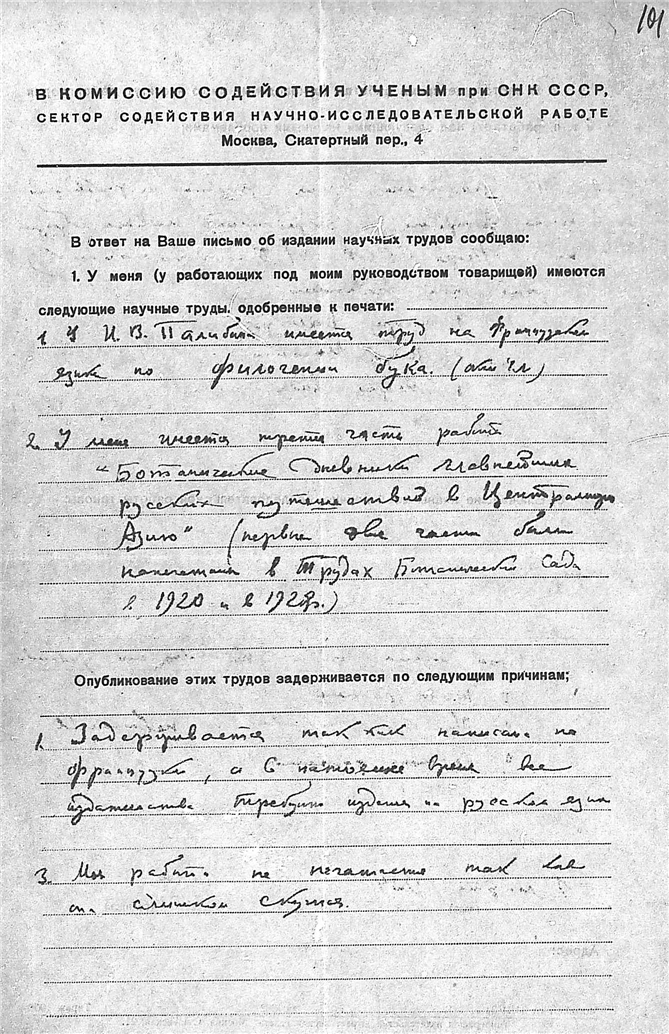 101
В КОМИССИЮ СОДЕЙСТВИЯ УЧЕНЫМ при СНК СССР,
СЕКТОР СОДЕЙСТВИЯ НАУЧНО-ИССЛЕДОВАТЕЛЬСКОЙ РАБОТЕ
Москва, Скатертный пер., 4
В ответ на Ваше письмо об издании научных трудов сообщаю:
1. У меня (у работающих под моим руководством товарищей) имеются
следующие научные труды, одобренные к печати:
1. У И. В. Палибина имеется труд на французском
языке по филогении бука.
2. У меня имеется третья часть работы
"Ботанические дневники главнейших
русских путешествий в Центральную
Азию" (первые две части были
напечатаны в Трудах Ботанического Сада
в 1920 и в 1928г.)
Опубликование этих трудов задерживается по следующим причинам;
1. Задерживается так как написана по
французски, а в настоящее время все
издательства требуют издания на русском языке
3. Моя работа не печатается так как
она слишком скучна.